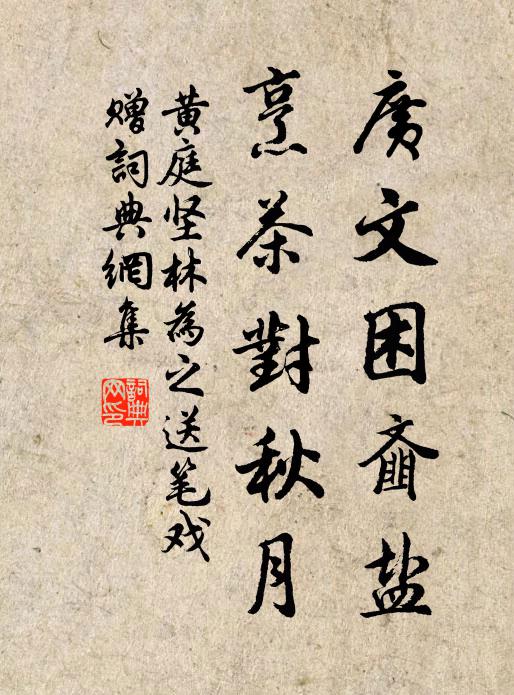 廣文困齑盐
烹茶對秋月
黄庭坚林為之送笔戏
赠詞典網集
詞典网印